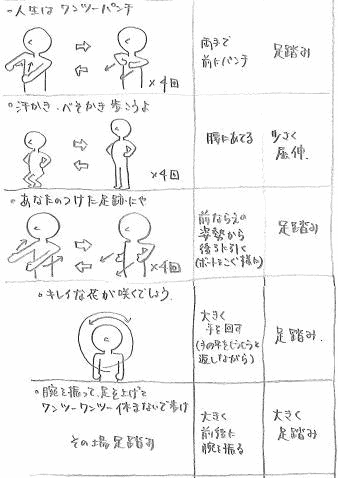 ○人生は ワンツーパンチ
×4回
両手で
前にパンチ
足踏み
○汗かき・べそかき 歩こうよ
×4回
腰にあてる
小さく
屈伸
○あなたのつけた足跡にゃ
×4回
前ならえの
姿勢から
後ろに引く
(ボートをこぐ様に)
足踏み
○キレイな花が咲くでしょう
大きく
手を回す
返しながら)
足踏み
○腕を振って、足を上げて
ワンツーワンツー 休まないで歩け
その場足踏み
大きく
前後に
腕を振る
大きく
足踏み